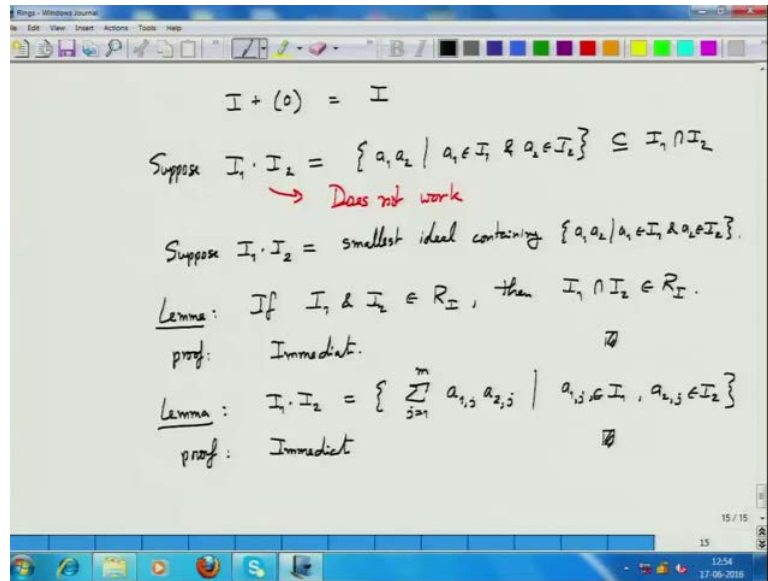 Rings - Windows Journal
Edit View Insert Actions Tools Help
I + (0) = I
Suppose I₁ · I₂ = { a₁a₂ | a₁ ∈ I₁ & a₂ ∈ I₂ } ⊆ I₁ ∩ I₂
→ Does not work
Suppose I₁ · I₂ = smallest ideal containing { a₁a₂ | a₁ ∈ I₁ & a₂ ∈ I₂ }.
Lemma : If I₁ & I₂ ∈ R_I , then I₁ ∩ I₂ ∈ R_I .
proof: Immediat.
Lemma : I₁ · I₂ = { ∑_{j=1}^{m} a_{1,j} a_{2,j} | a_{1,j} ∈ I₁ , a_{2,j} ∈ I₂ }
proof : Immediat
15 / 15
15
12:54
17-06-2016